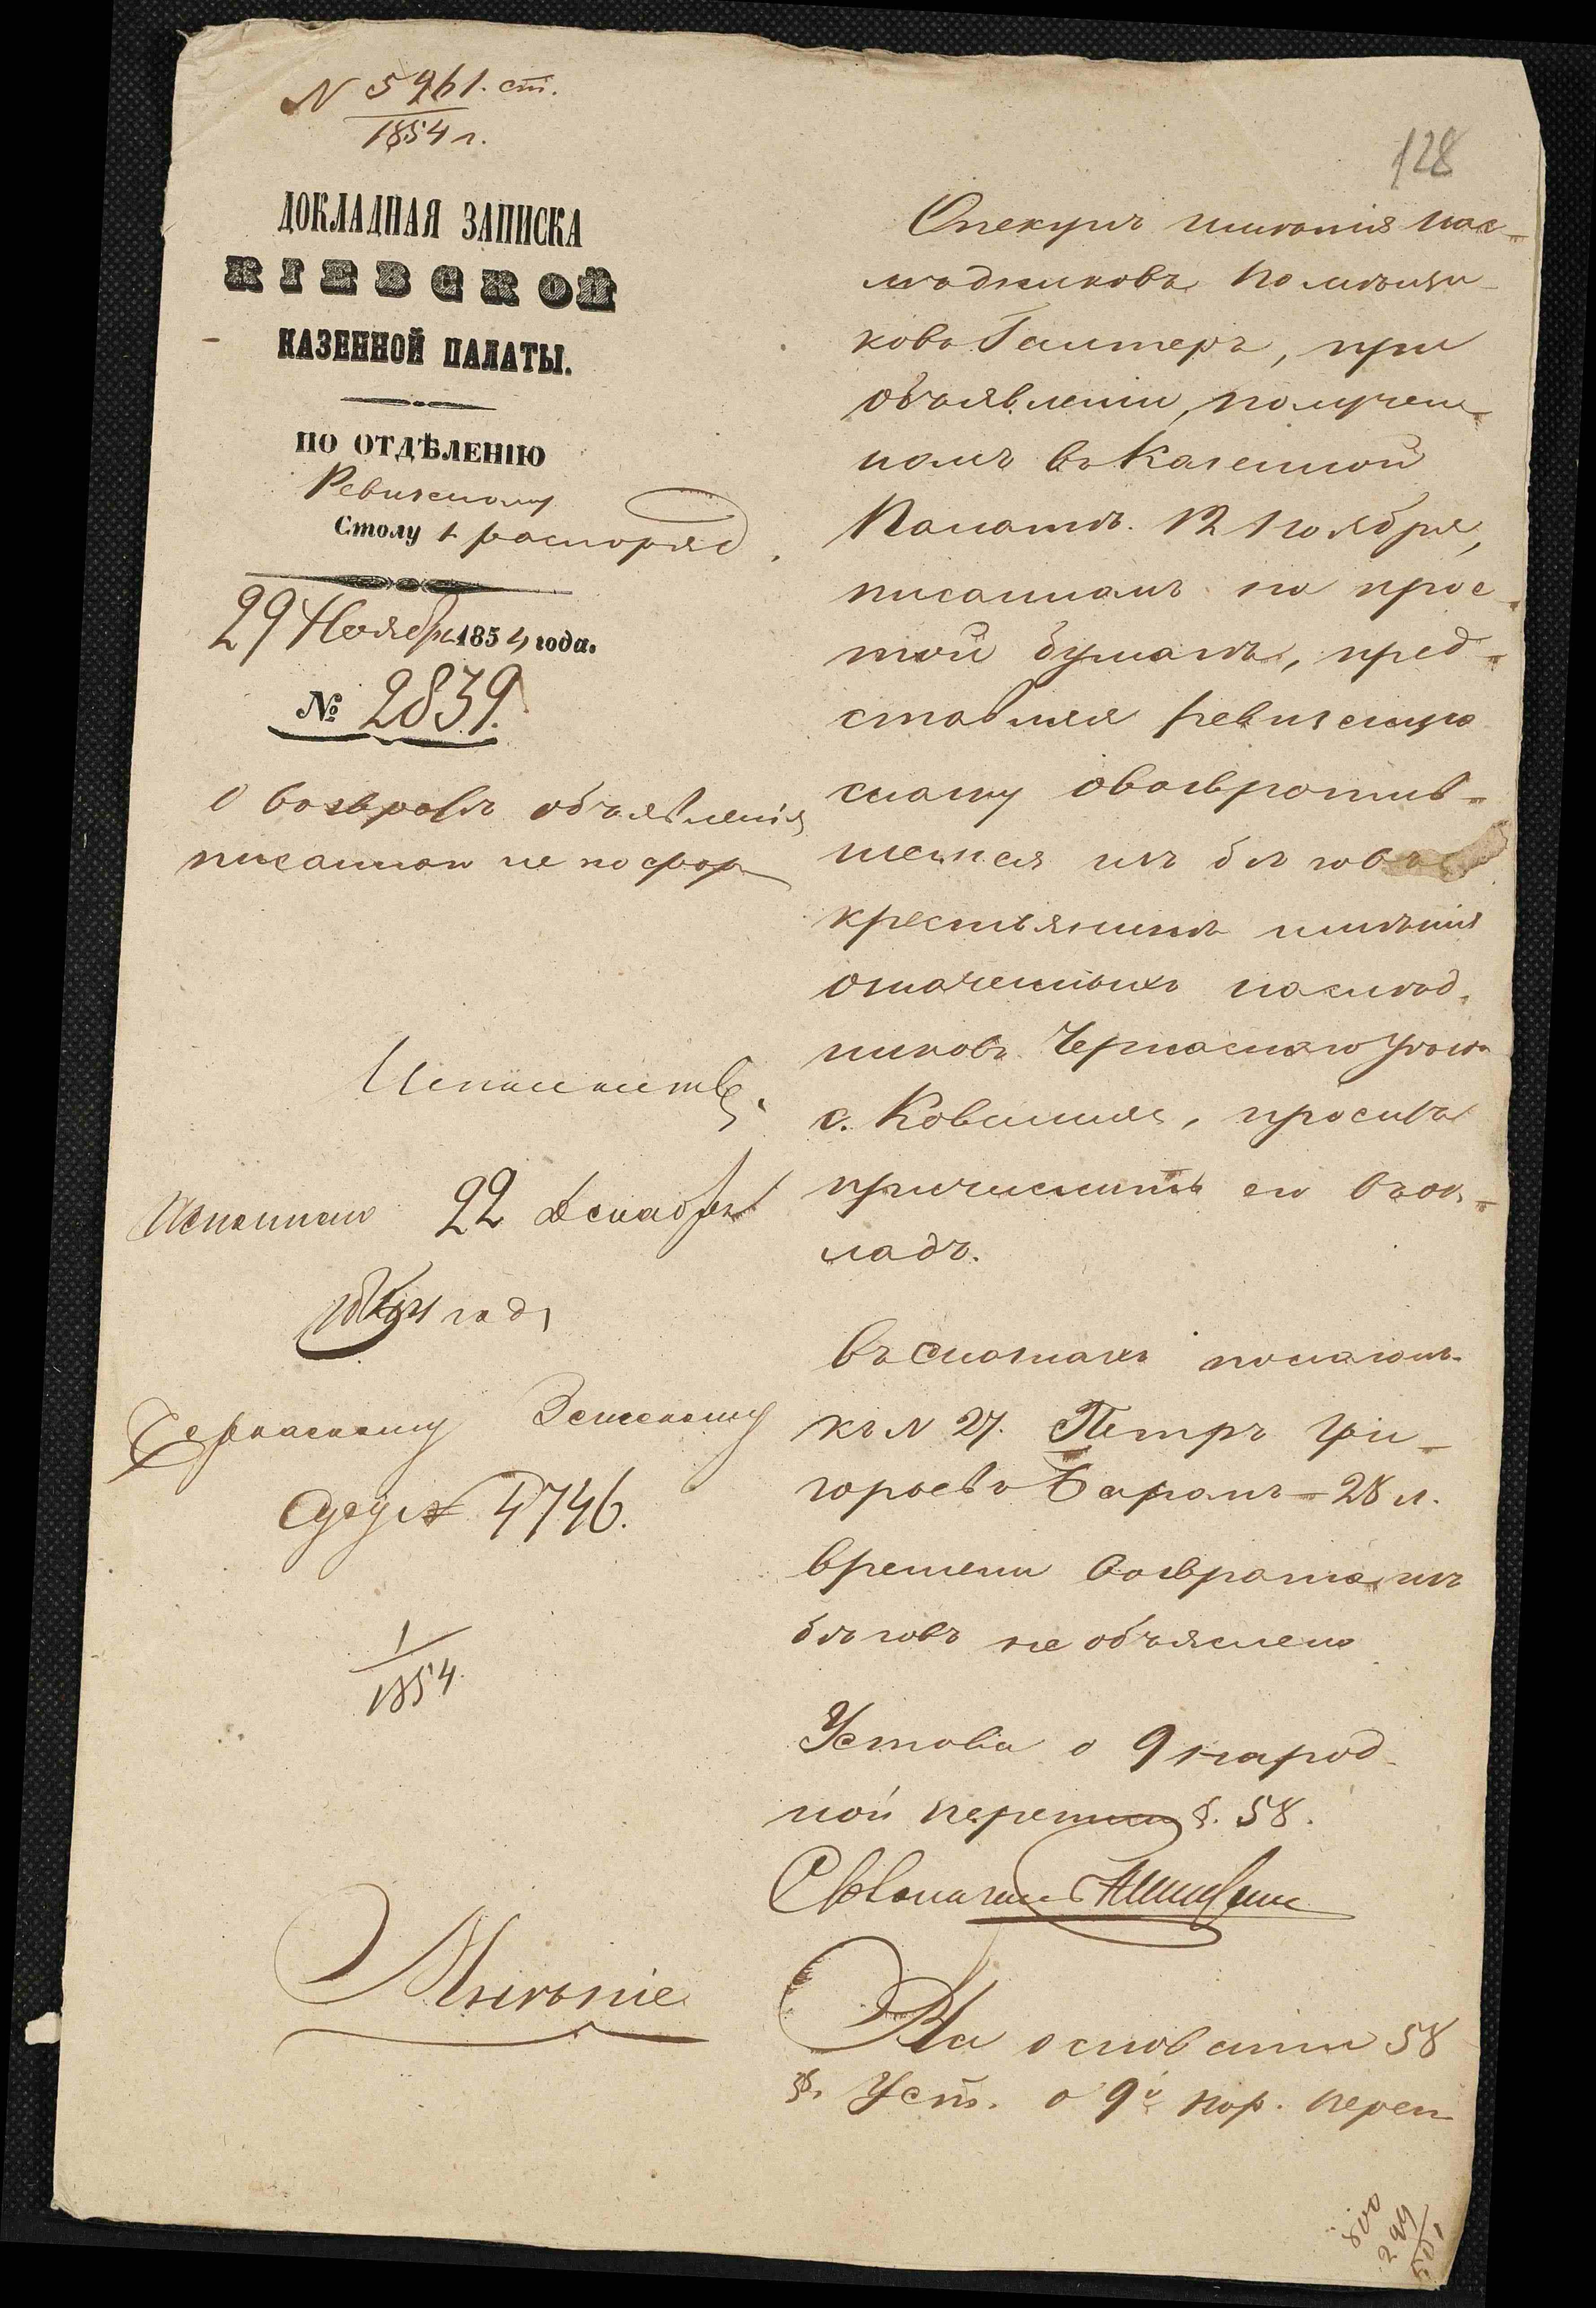 N 5961. ст.
1854 г.
128
ДОКЛАДНАЯ ЗАПИСКА
КІЕВСКОЙ
КАЗЕННОЙ ПАЛАТЫ.
ПО ОТДѢЛЕНІЮ
Ревизскому
Столу 1 распоряд
29 Ноября 1854 года.
№ 2839.
О возвратѣ объявленія
писаннаго не по фор
Исполнено 22 Декабря
1854 года
Черкаскому Земскому
Суду № 4746.
1
1854.
Мнѣніе
Опекунъ имѣнія нас-
лѣдниковъ помѣщи-
ковъ, при
объявленіи, получен-
номъ въ Казенной
Палатѣ 12 Ноября,
писанномъ на прос-
той бумагѣ, пред-
ставляя ревизскую
сказку о возвратив-
шемся изъ бѣговъ
крестьянинѣ имѣнія
означенныхъ наслѣд-
никовъ Черкаскаго уѣзда
с., проситъ
причислить его въ ок-
ладъ.
Въ сказкахъ показанъ
къ N 27. Петръ Гри-
горьевъ Баранъ - 28 л.
времени возврата изъ
бѣговъ не объяснено
Устава о 9 народ-
ной переписи §. 58.
На основаніи 58
§. Уст. о 9й нар. переп
800
299
501